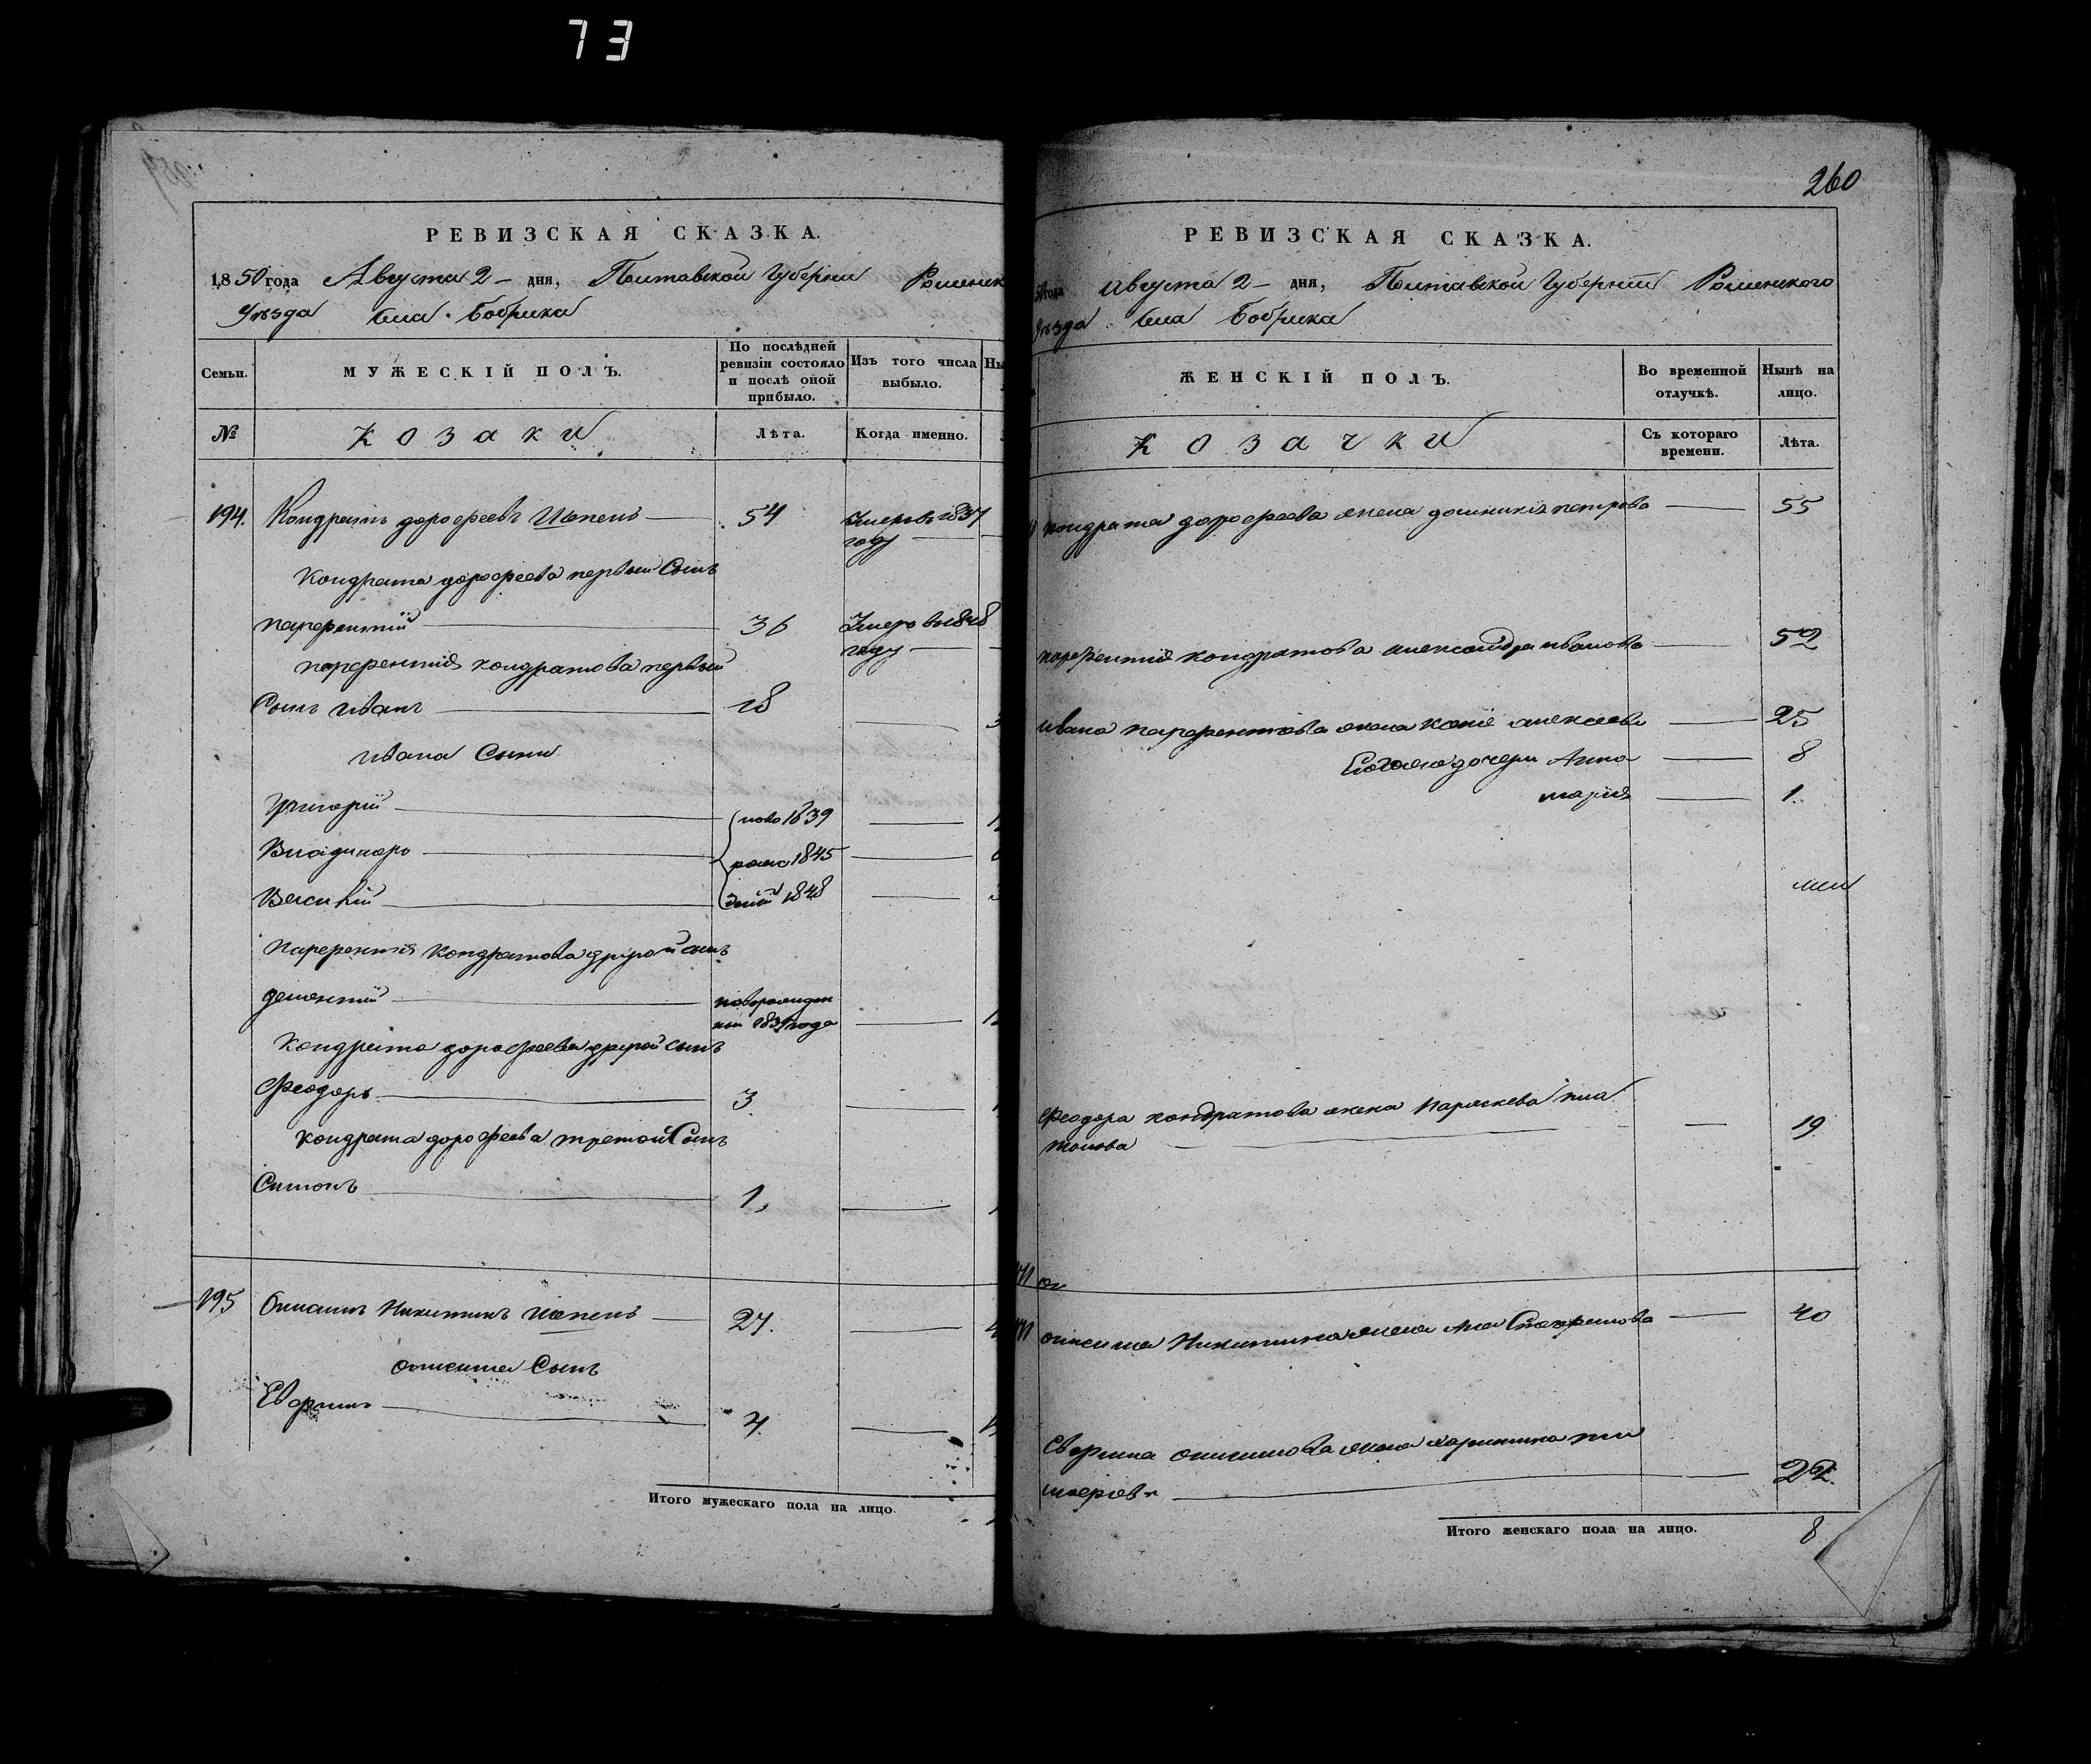 73
РЕВИЗСКАЯ СКАЗКА.
1850 года Августа 2 - дня, Полтавской Губернии Роменск
Уезда Села Бобрика
Семьи.
МУЖЕСКІЙ ПОЛЪ.
По послѣдней ревизіи состояло и послѣ оной прибыло.
Изъ того числа выбыло.
Ны
№
Козаки
Лѣта.
Когда именно.
194. Кондратъ дорофеевъ Шепень 54 Умеръ в 1837
году
Кондрата дорофеева первый Сынъ
парфентий 36 Умеръ в 1848
году
парфентия кондратова первый
Сынъ иванъ 18
ивана Сыни
Григорий ново 1839
Владимиръ рож 1845
Василий дений 1848
парфентия кондратова другой сынъ
дементий новорожден
ный 1839 года
Кондрата дорофеева другой сынъ
Феодоръ 3.
Кондрата дорофеева третой Сынъ
Симонъ 1,
195 Онисимъ Никитинъ Шепень 27.
Онисима Сынъ
Евфимъ 4.
Итого мужескаго пола на лицо.
260
РЕВИЗСКАЯ СКАЗКА.
50 года августа 2 - дня, Полтавской Губернии Роменского
Уезда Села Бобрика
ЖЕНСКІЙ ПОЛЪ.
Во временной отлучкѣ.
Нынѣ на лицо.
Козачки
Съ котораго времени.
Лѣта.
кондрата дорофеева жена домникия петрова 55
парфентия кондратова александра иванова 52
ивана парфентиева жена алексеева 25
дочери Анна 8
мария 1.
Феодора кондратова жена Параскева пла
тонова 19.
онисима Никитина жена 40
Евфима онисимова жена харитина
Итого женскаго пола на лицо. 8